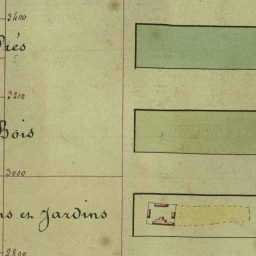 3400
Prés
3200
Bois
3000
ns et Jardins
2800